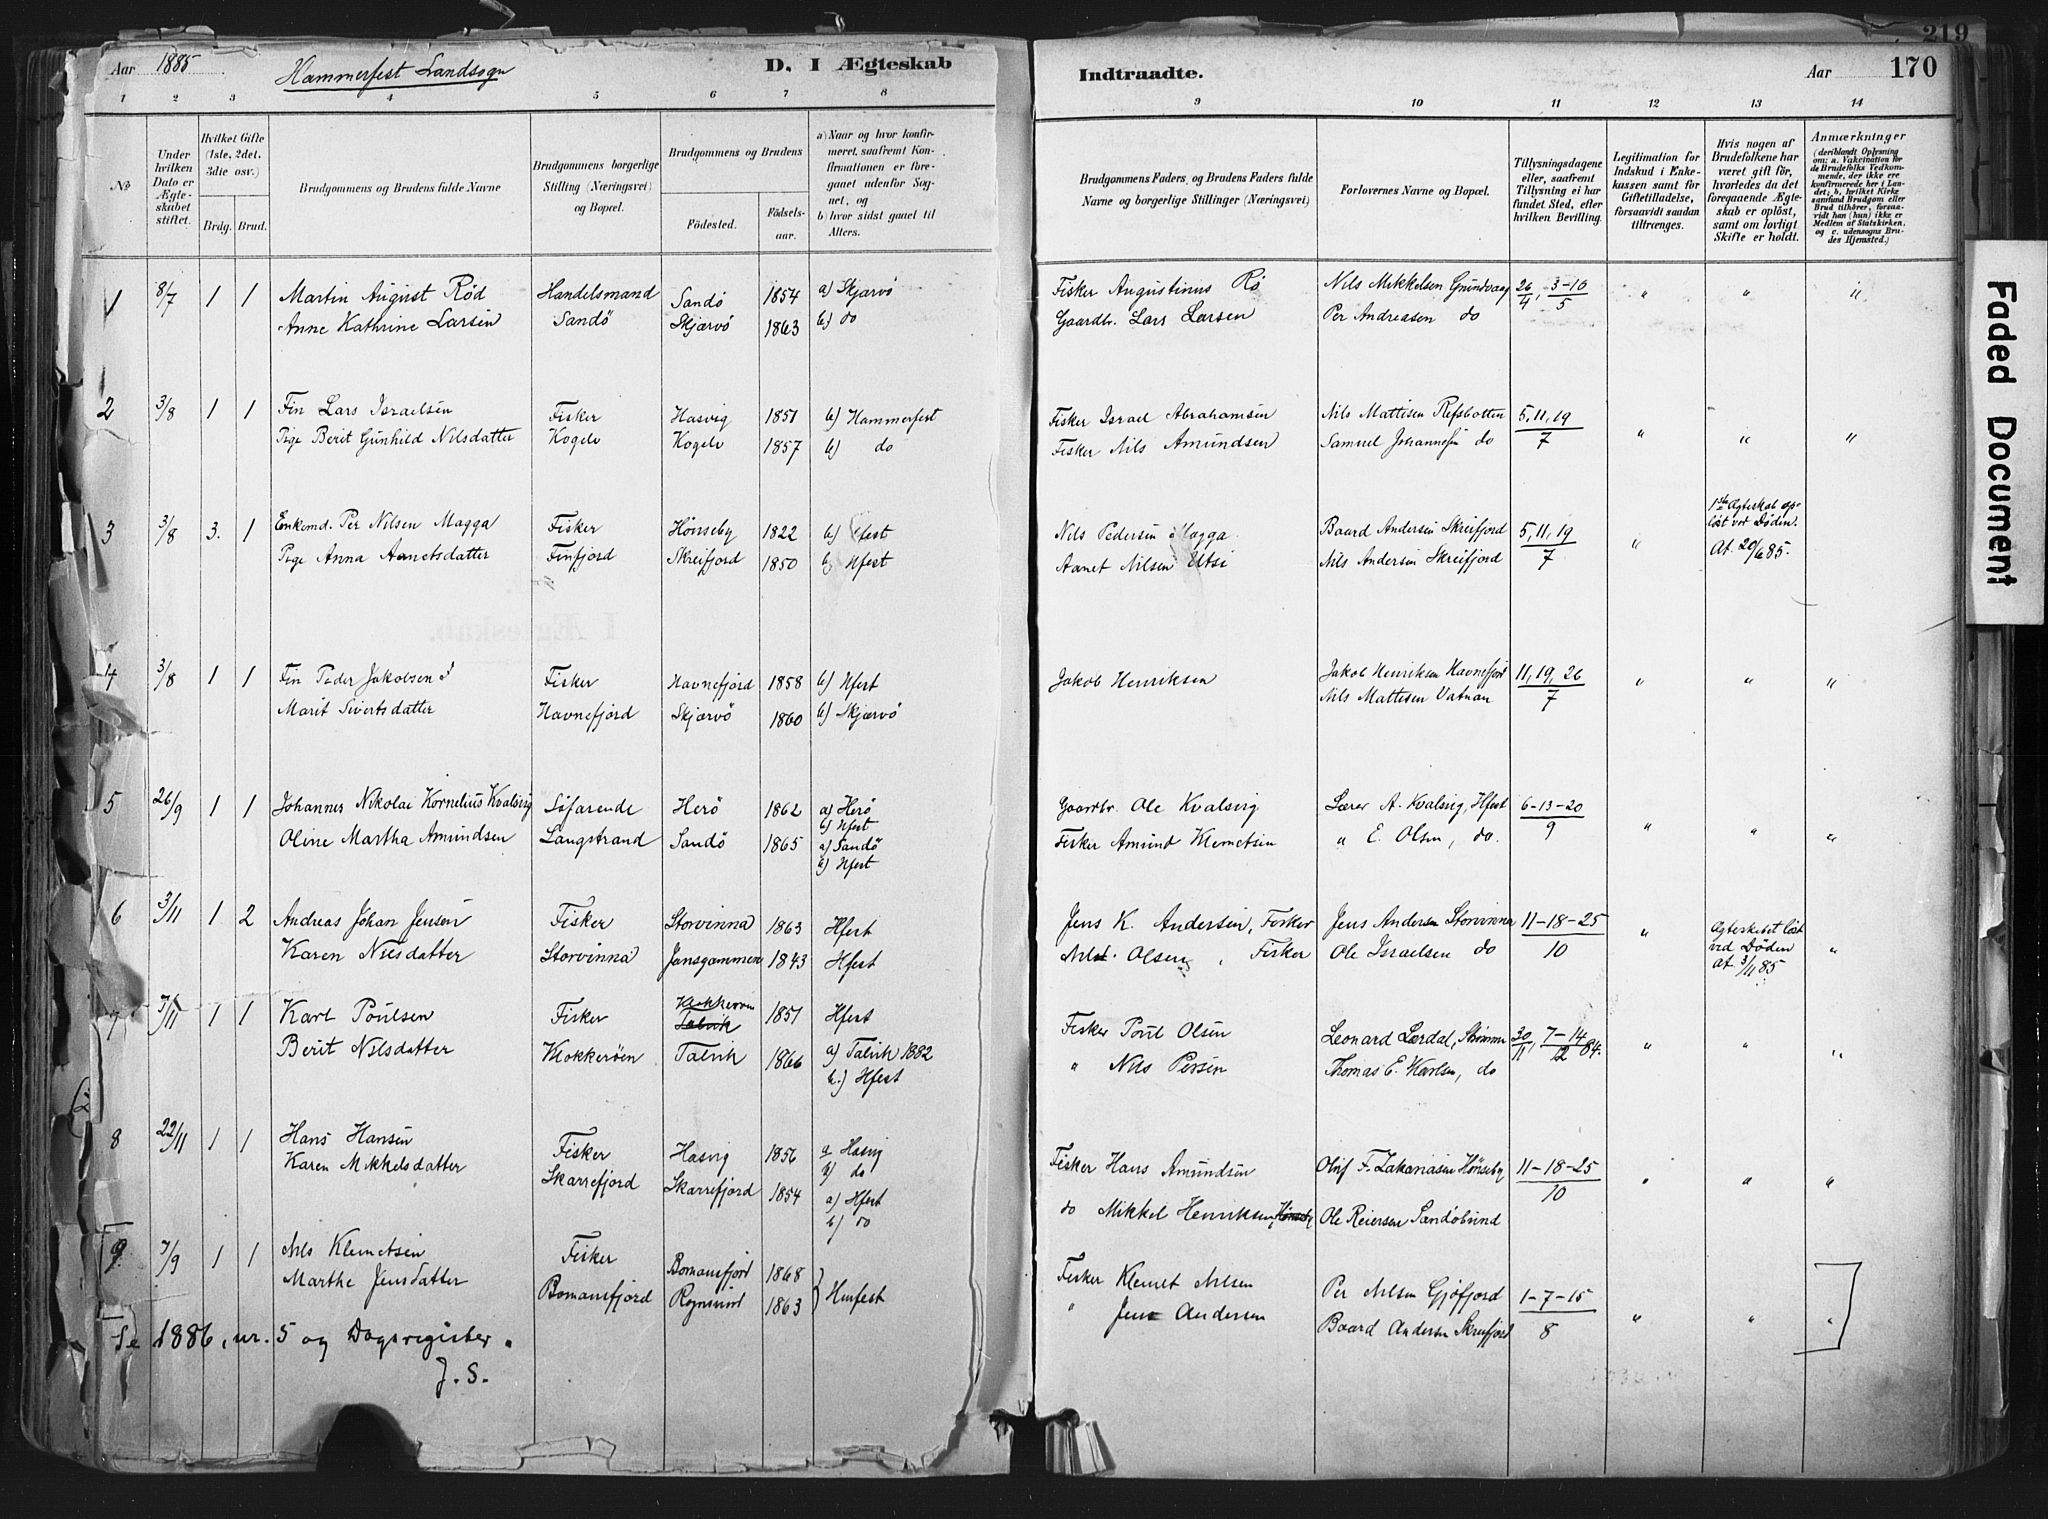 Aar 1885 Hammerfest Landsogn D. I Ægteskab
1 2 3 4 5 6 7 8
No
Under hvilken Dato er Ægteskabet stiftet.
Hvilket Gifte (1ste, 2det, 3die osv.)
Brdg. Brud.
Brudgommens og Brudens fulde Navne
Brudgommens borgerlige Stilling (Næringsvei) og Bopæl.
Brudgommens og Brudens
Fødested. Fødselsaar.
a) Naar og hvor konfirmeret, saafremt Konfirmationen er foregaaet udenfor Sognet, og
b) hvor sidst gaaet til Alters.
1 8/7 1 1 Martin August Röd Handelsmand Sandö 1854 a) Skjærvö
Anne Kathrine Larsen Sandö Skjærvö 1863 b) do
2 3/8 1 1 Fin Lars Israelsen Fisker Hasvig 1851 b) Hammerfest
Pige Berit Gunhild Nilsdatter Kogelv Kogelv 1857 b) do
3 3/8 3. 1 Enkemd. Per Nilsen Magga Fisker Hönseby 1822 b) Hfest
Pige Anna Aanetsdatter Finfjord Skreifjord 1850 b) Hfest
4 3/8 1 1 Fin Peder Jakobsen Fisker Havnefjord 1858 b) Hfest
Marit Sivertsdatter Havnefjord Skjærvö 1860 b) Skjærvö
5 26/9 1 1 Johannes Nikolai Kornelius Kvalsvig Söfarende Herö 1862 a) Herö
b) Hfest
Oline Martha Amundsen Langstrand Sandö 1865 a) Sandö
b) Hfest
6 3/11 1 2 Andreas Johan Jensen Fisker Storvinna 1863 Hfest
Karen Nilsdatter Storvinna Jansgammen 1843 Hfest
7 7/11 1 1 Karl Poulsen Fisker Talvik 1851 Hfest
Berit Nilsdatter Klokkeröen Talvik 1866 a) Talvik 1882
b.) Hfest
8 22/11 1 1 Hans Hansen Fisker Hasvig 1856 a Hasvig
Karen Mikkelsdatter Skarrefjord Skarrefjord 1854 b) do
a) Hfest
b) do
9 7/9 1 1 Nils Klemetsen Fisker Bomansfjord 1868
Marthe Jensdatter Bomansfjord 1863 Hmfest
Se 1886, nr. 5 og Dagsregister.
J. S.
219
Indtraadte. Aar 170
9 10 11 12 13 14
Brudgommens Faders og Brudens Faders fulde Navne og borgerlige Stillinger (Næringsvei)
Forlovernes Navne og Bopæl.
Tillysningsdagene eller, saafremt Tillysning ei har fundet Sted, efter hvilken Bevilling.
Legitimation for Indskud i Enkekassen samt for Giftetilladelse, forsaavidt saadan tiltrænges.
Hvis nogen af Brudefolkene har været gift før, hvorledes da det foregaaende Ægteskab er opløst, samt om lovligt Skifte er holdt.
Anmærkninger
(deriblandt Oplysning om: a. Vakcination for de Brudefolks Vedkommende, der ikke ere konfirmerede her i Landet; b, hvilket Kirkesamfund Brudgom eller Brud tilhører, forsaavidt han (hun) ikke er Medlem af Statskirken, og c. udensogns Brudes Hjemsted.)
Fisker Augustinus Rö Nils Mikkelsen Grundvaag 26/4, 3-10/5 " " "
Gaardbr. Lars Larsen Per Andreasen do
Fisker Israel Abrahamsen Nils Mattisen Refsbotten 5,11,19/7 " " "
Fisker Nils Amundsen Samuel Johannesen do
Nils Pedersen Magga Baard Andersen Skreifjord 5,11,19/7 " 1ste Ægteskab opløst ved Døden. At. 20/6 85.
Aanet Nilsen Utsi Nils Andersen Skreifjord
Jakob Henriksen Jakob Henriksen Havnefjord 11,19,26/7 " " "
Nils Mattisen Vatnan
Gaardbr. Ole Kvalsvig Lærer A. Kvalsvig, Hfest 6-13-20/9 " " "
Fisker Amund Klemetsen " E. Olsen, do.
Jens K. Andersen, Fisker Jens Andersen Storvinna 11-18-25/10 " Ægteskabet löst ved Døden At. 3/11 85 "
Nils Olsen, Fisker Ole Israelsen do
Fisker Poul Olsen Leonard Lærdal, 30/11, 7-14/12 84. " " "
" Nils Persen Thomas E. Karlsen, do
Fisker Hans Amundsen Oluf F. Zakariasen Hönseby 11-18-25/10 " " "
do Mikkel Henriksen Ole Reiersen Sandösund
Fisker Klemet Nilsen Per Nilsen Gjöfjord 1-7-15/8 " " "
" Jens Andersen Baard Andersen Skreifjord
Faded Document